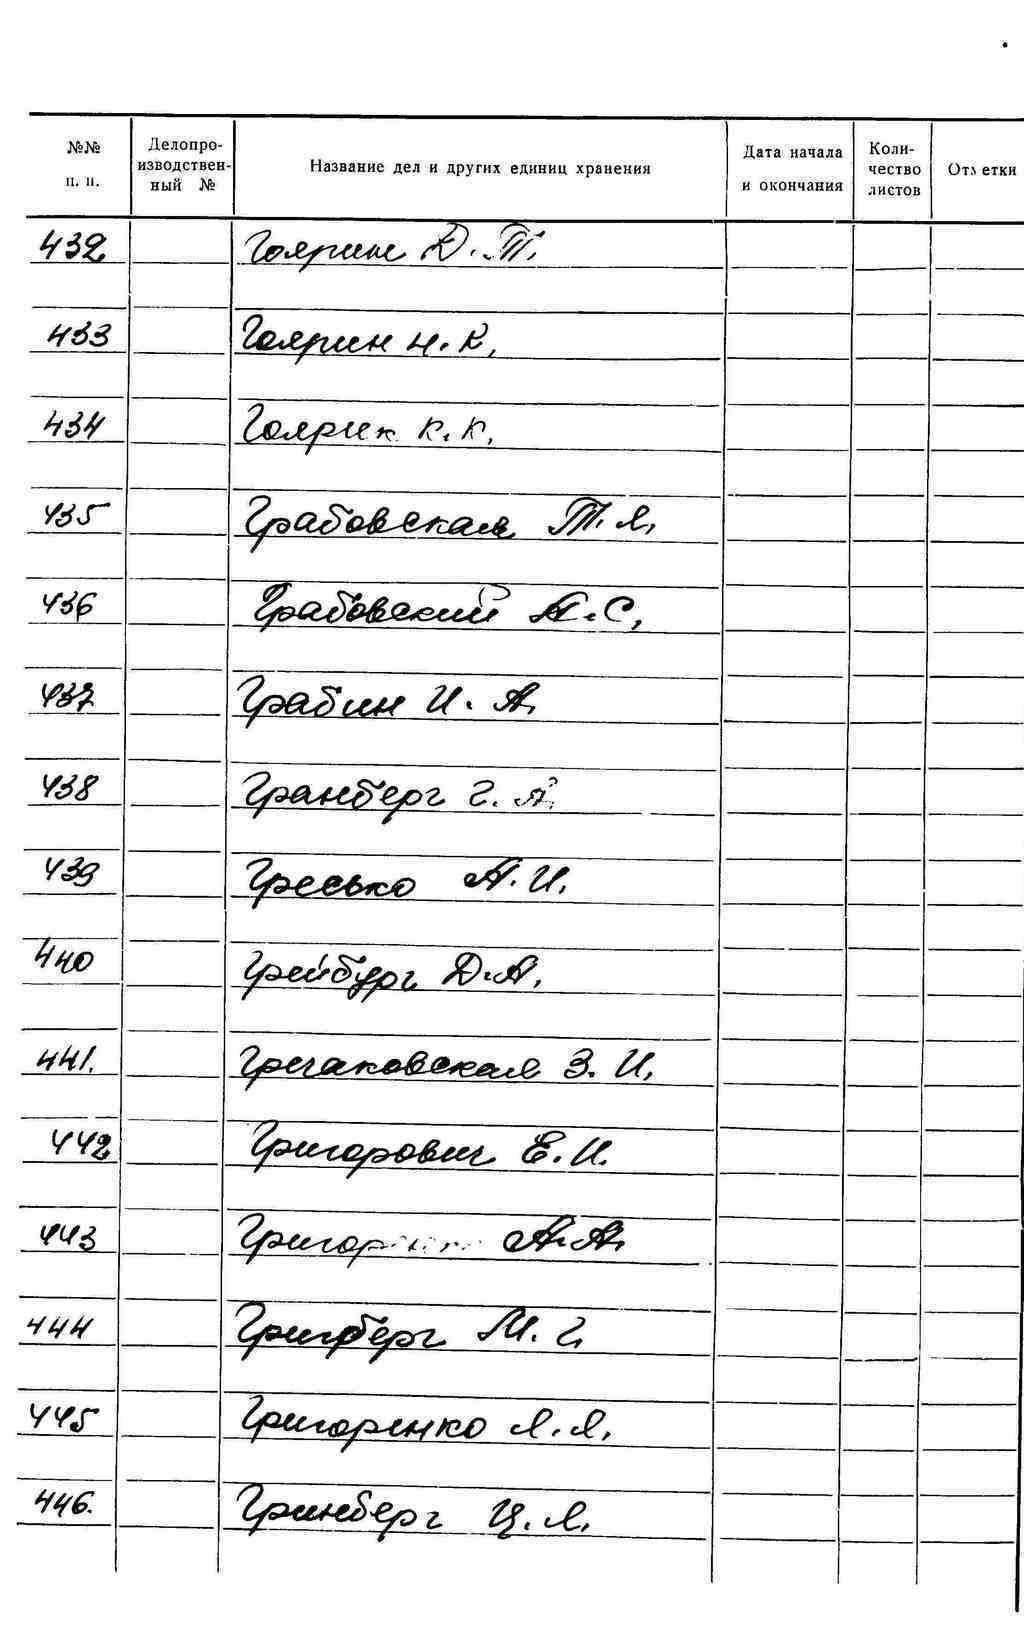 №№ п. п.
Делопро-
изводствен-
ный №
Название дел и других единиц хранения
Дата начала
и окончания
Коли-
чество
листов
Отметки
432 Гоярин Д. Т.
433 Гоярин Н. К.
434 Гоярин К. К.
435 Грабовская Т. Я.
436 Грабовский А. С.
437 Грабин И. А.
438 Гранберг Г. А.
439 Гресько А. И.
440 Грейбург Д. А.
441. Гречаковская З. И.
442 Григорович Е. И.
443 А. А.
444 М. Г.
445 Григоренко Л. Я.
446. Гринберг Ц. Я.